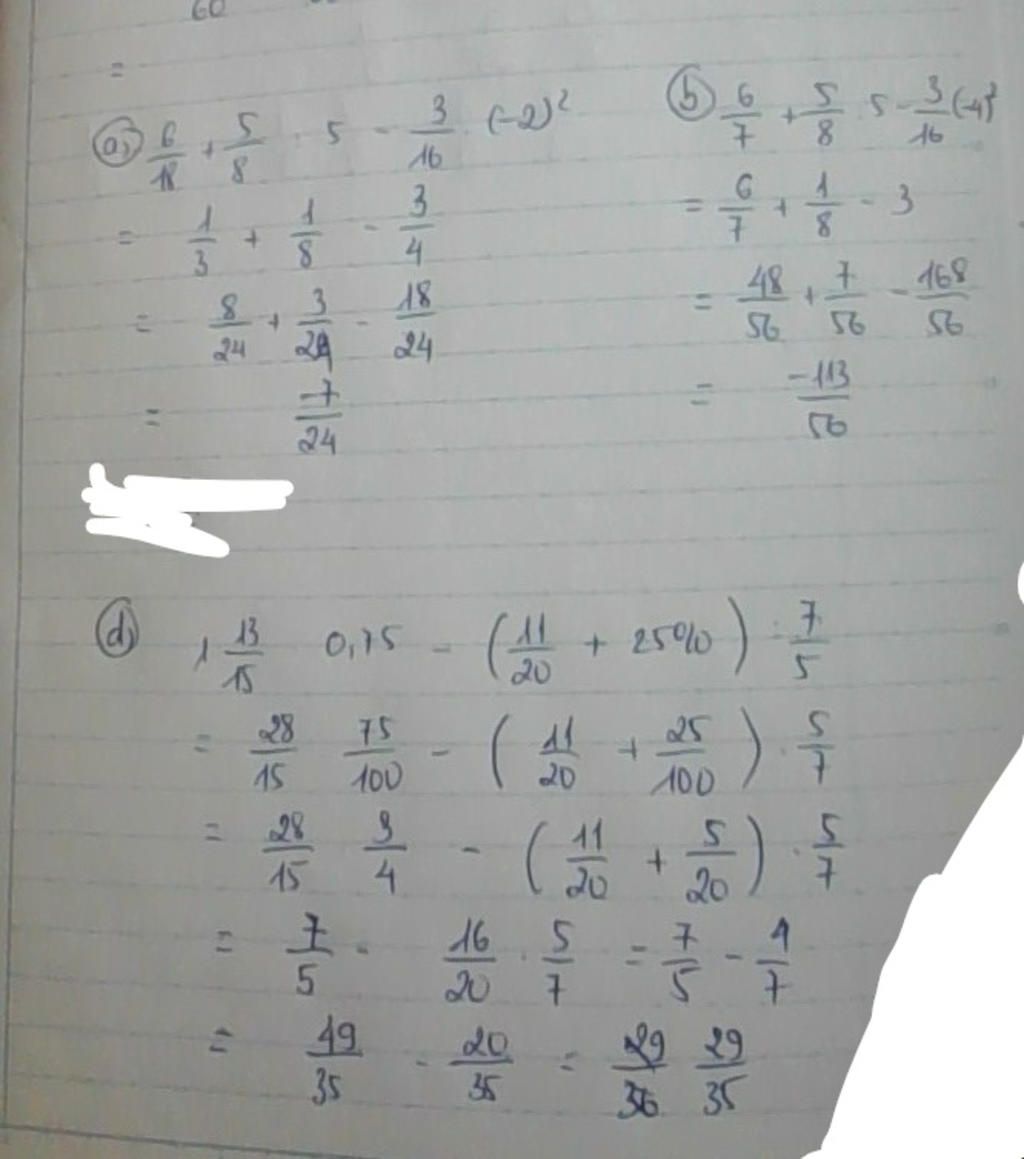 60
=
a) 6/18 + 5/8 : 5 - 3/16 . (-2)²
= 1/3 + 1/8 - 3/4
= 8/24 + 3/24 - 18/24
= -7/24
b) 6/7 + 5/8 : 5 - 3/16 (-4)²
= 6/7 + 1/8 - 3
= 48/56 + 7/56 - 168/56
= -113/56
d) 1 13/15 . 0,75 - (11/20 + 25%) : 7/5
= 28/15 . 75/100 - (11/20 + 25/100) . 5/7
= 28/15 . 3/4 - (11/20 + 5/20) . 5/7
= 7/5 - 16/20 . 5/7 = 7/5 - 4/7
= 49/35 - 20/35 = 29/36 29/35